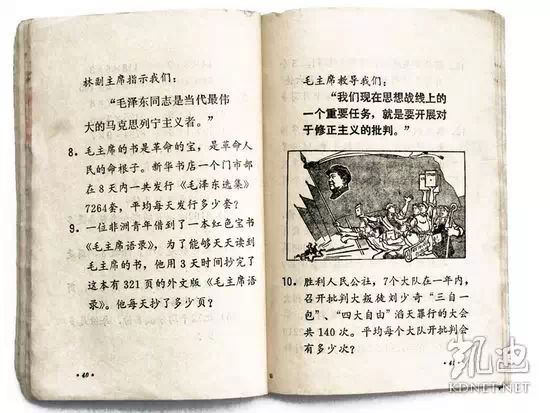 林副主席指示我们：
“毛泽东同志是当代最伟
大的马克思列宁主义者。”
8．毛主席的书是革命的宝，是革命人
民的命根子。新华书店一个门市部
在8天内一共发行《毛泽东选集》
7264套，平均每天发行多少套？
9．一位非洲青年借到了一本红色宝书
《毛主席语录》，为了能够天天读到
毛主席的书，他用3天时间抄完了
这本有321页的外文版《毛主席语
录》。他每天抄了多少页？
·40·
毛主席教导我们：
“我们现在思想战线上的
一个重要任务，就是要开展对
于修正主义的批判。”
10．胜利人民公社，7个大队在一年内，
召开批判大叛徒刘少奇“三自一
包”、“四大自由”滔天罪行的大会
共140次。平均每个大队开批判会
有多少次？
·41·
凯迪
KDNET.NET